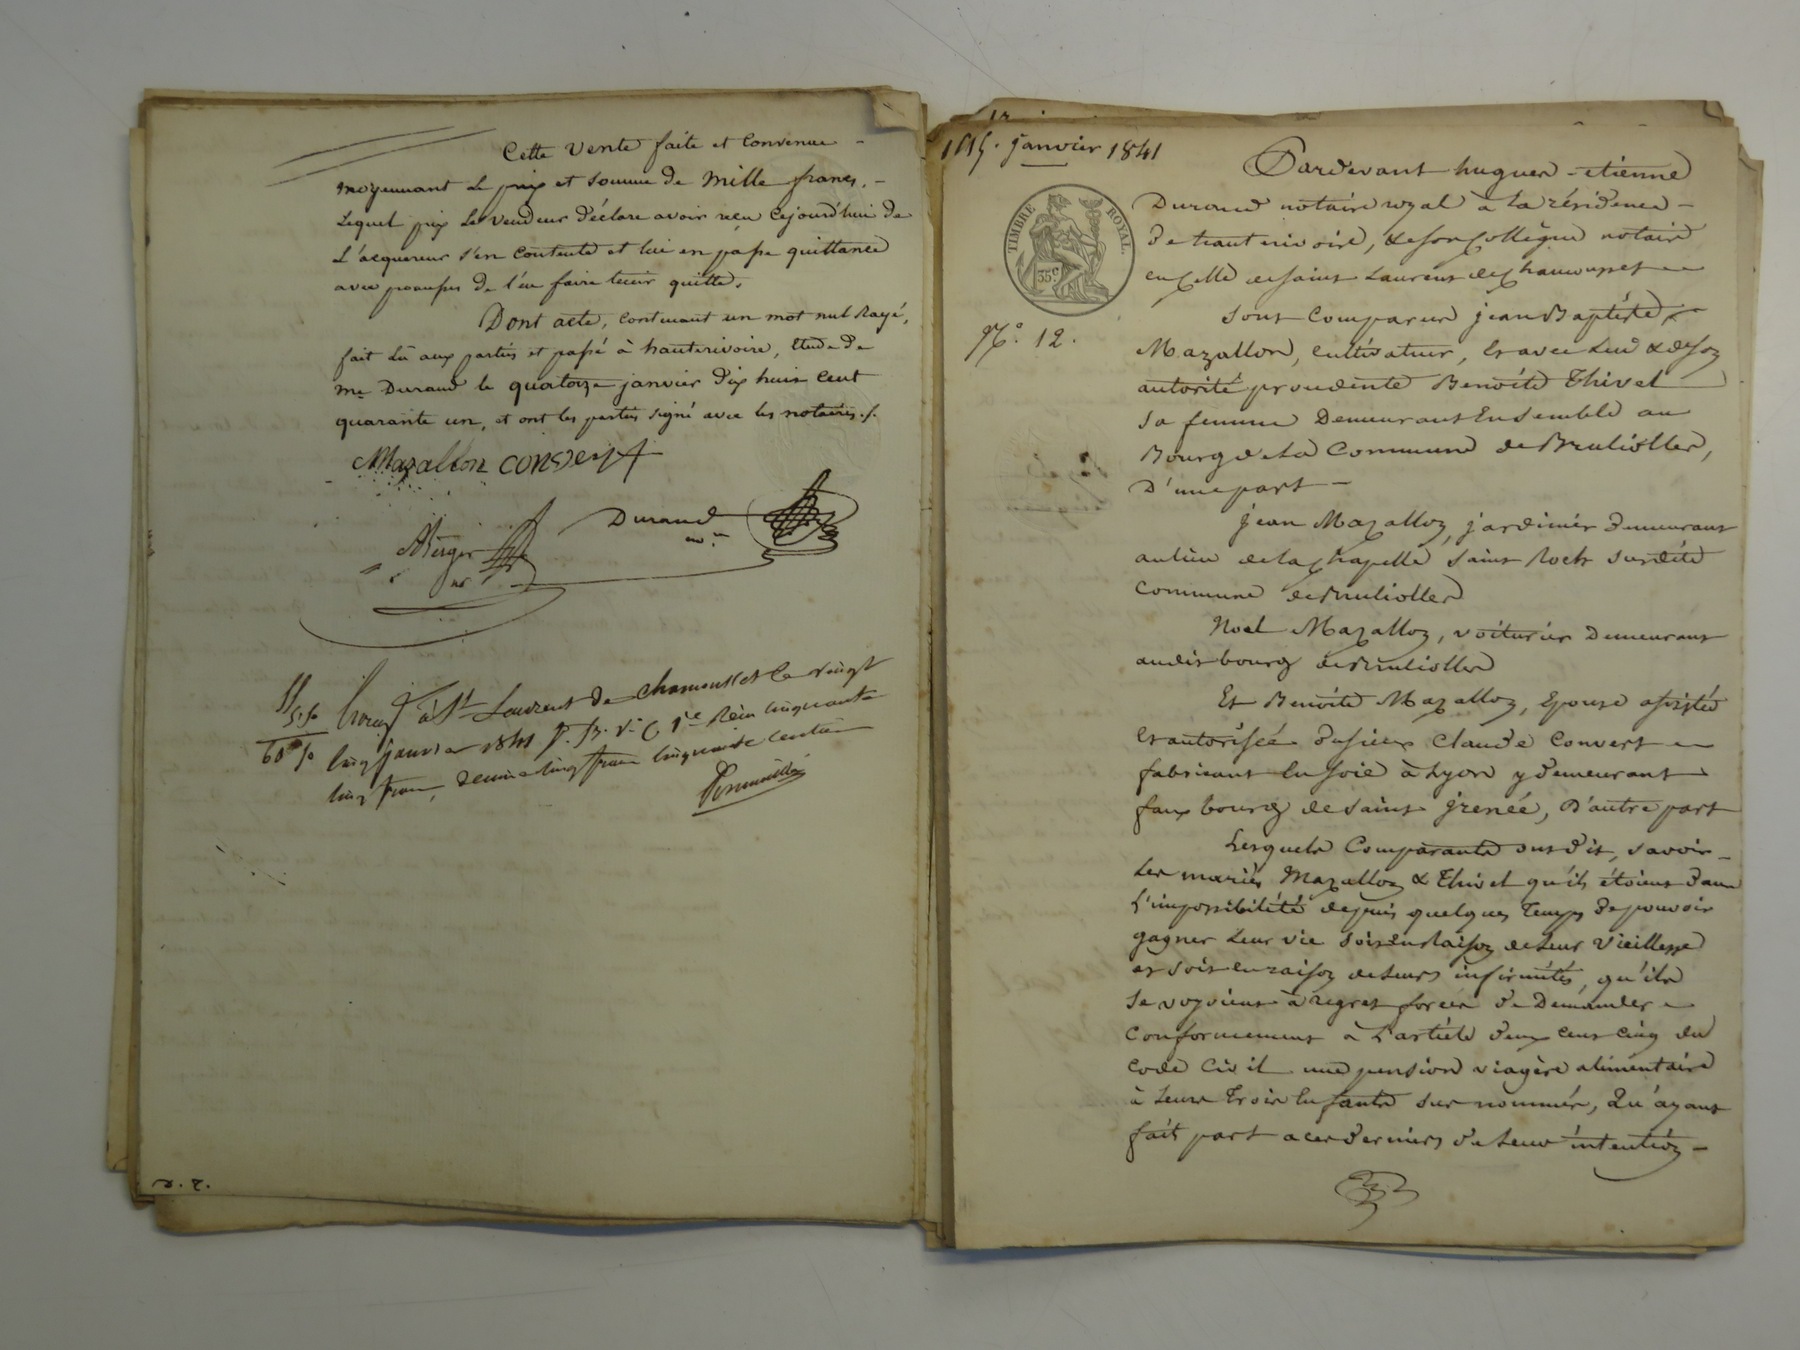 Cette vente faite et convenue -
moyennant le prix et somme de mille francs, -
Lequel prix le vendeur déclare avoir reçu cejourd'hui de
L'acquereur s'en contente et lui en passe quittance
avec promesse de l'en faire tenir quitte.
Dont acte, contenant un mot nul Rayé,
fait Lû aux parties et passé à hauterivoire, Etude de
me Durand le quatorze janvier dix huit cent
quarante un, et ont les parties signé avec les notaires ./.
Mazallon convert
Durand
nre
Berger
nre
55
5.50
60 50
à St Laurent de chamousset le vingt
cinq janvier 1841 f. v. c. 1re Reçu cinquante
cinq francs, decime cinq francs cinquante centimes
D. 2.
14 15. janvier 1841
TIMBRE ROYAL
35c
No. 12.
Pardevant hugues - etienne
Durand notaire royal à la résidence -
de hauterivoire, & son collègue notaire
en celle de saint Laurent de Chamousset
sont comparus jean Baptiste
Mazallon, cultivateur, et avec lui & de son
autorité procédente Benoite Thivel
sa femme Demeurant Ensemble au
Bourg de la Commune de Brulioller,
D'une part -
jean Mazallon, jardinier demeurant
au lieu de la chapelle saint Roch susdite
commune de Brulioller
Noel Mazallon, voiturier Demeurant
audit bourg de Brulioller
Et Benoite Mazallon, Epouse assistée
Et autorisée du sieur Claude Convert
fabricant En soie à Lyon y demeurant
faux bourg de saint jrenée, D'autre part
Lesquels Comparants ont dit, savoir -
Les mariés Mazallon & Thivel qu'ils étoient dans
L'impossibilité depuis quelques Temps de pouvoir
gagner Leur vie soit En Raison de Leur vieillesse
et soit En raison de Leurs infirmités, qu'ils
se voyoient à regret forcés de Demander
conformement à L'article deux cent cinq du
code Civil une pension viagère alimentaire
à Leurs Trois Enfants sus nommés, Qu'ayant
fait part à ces derniers de Leur intention -